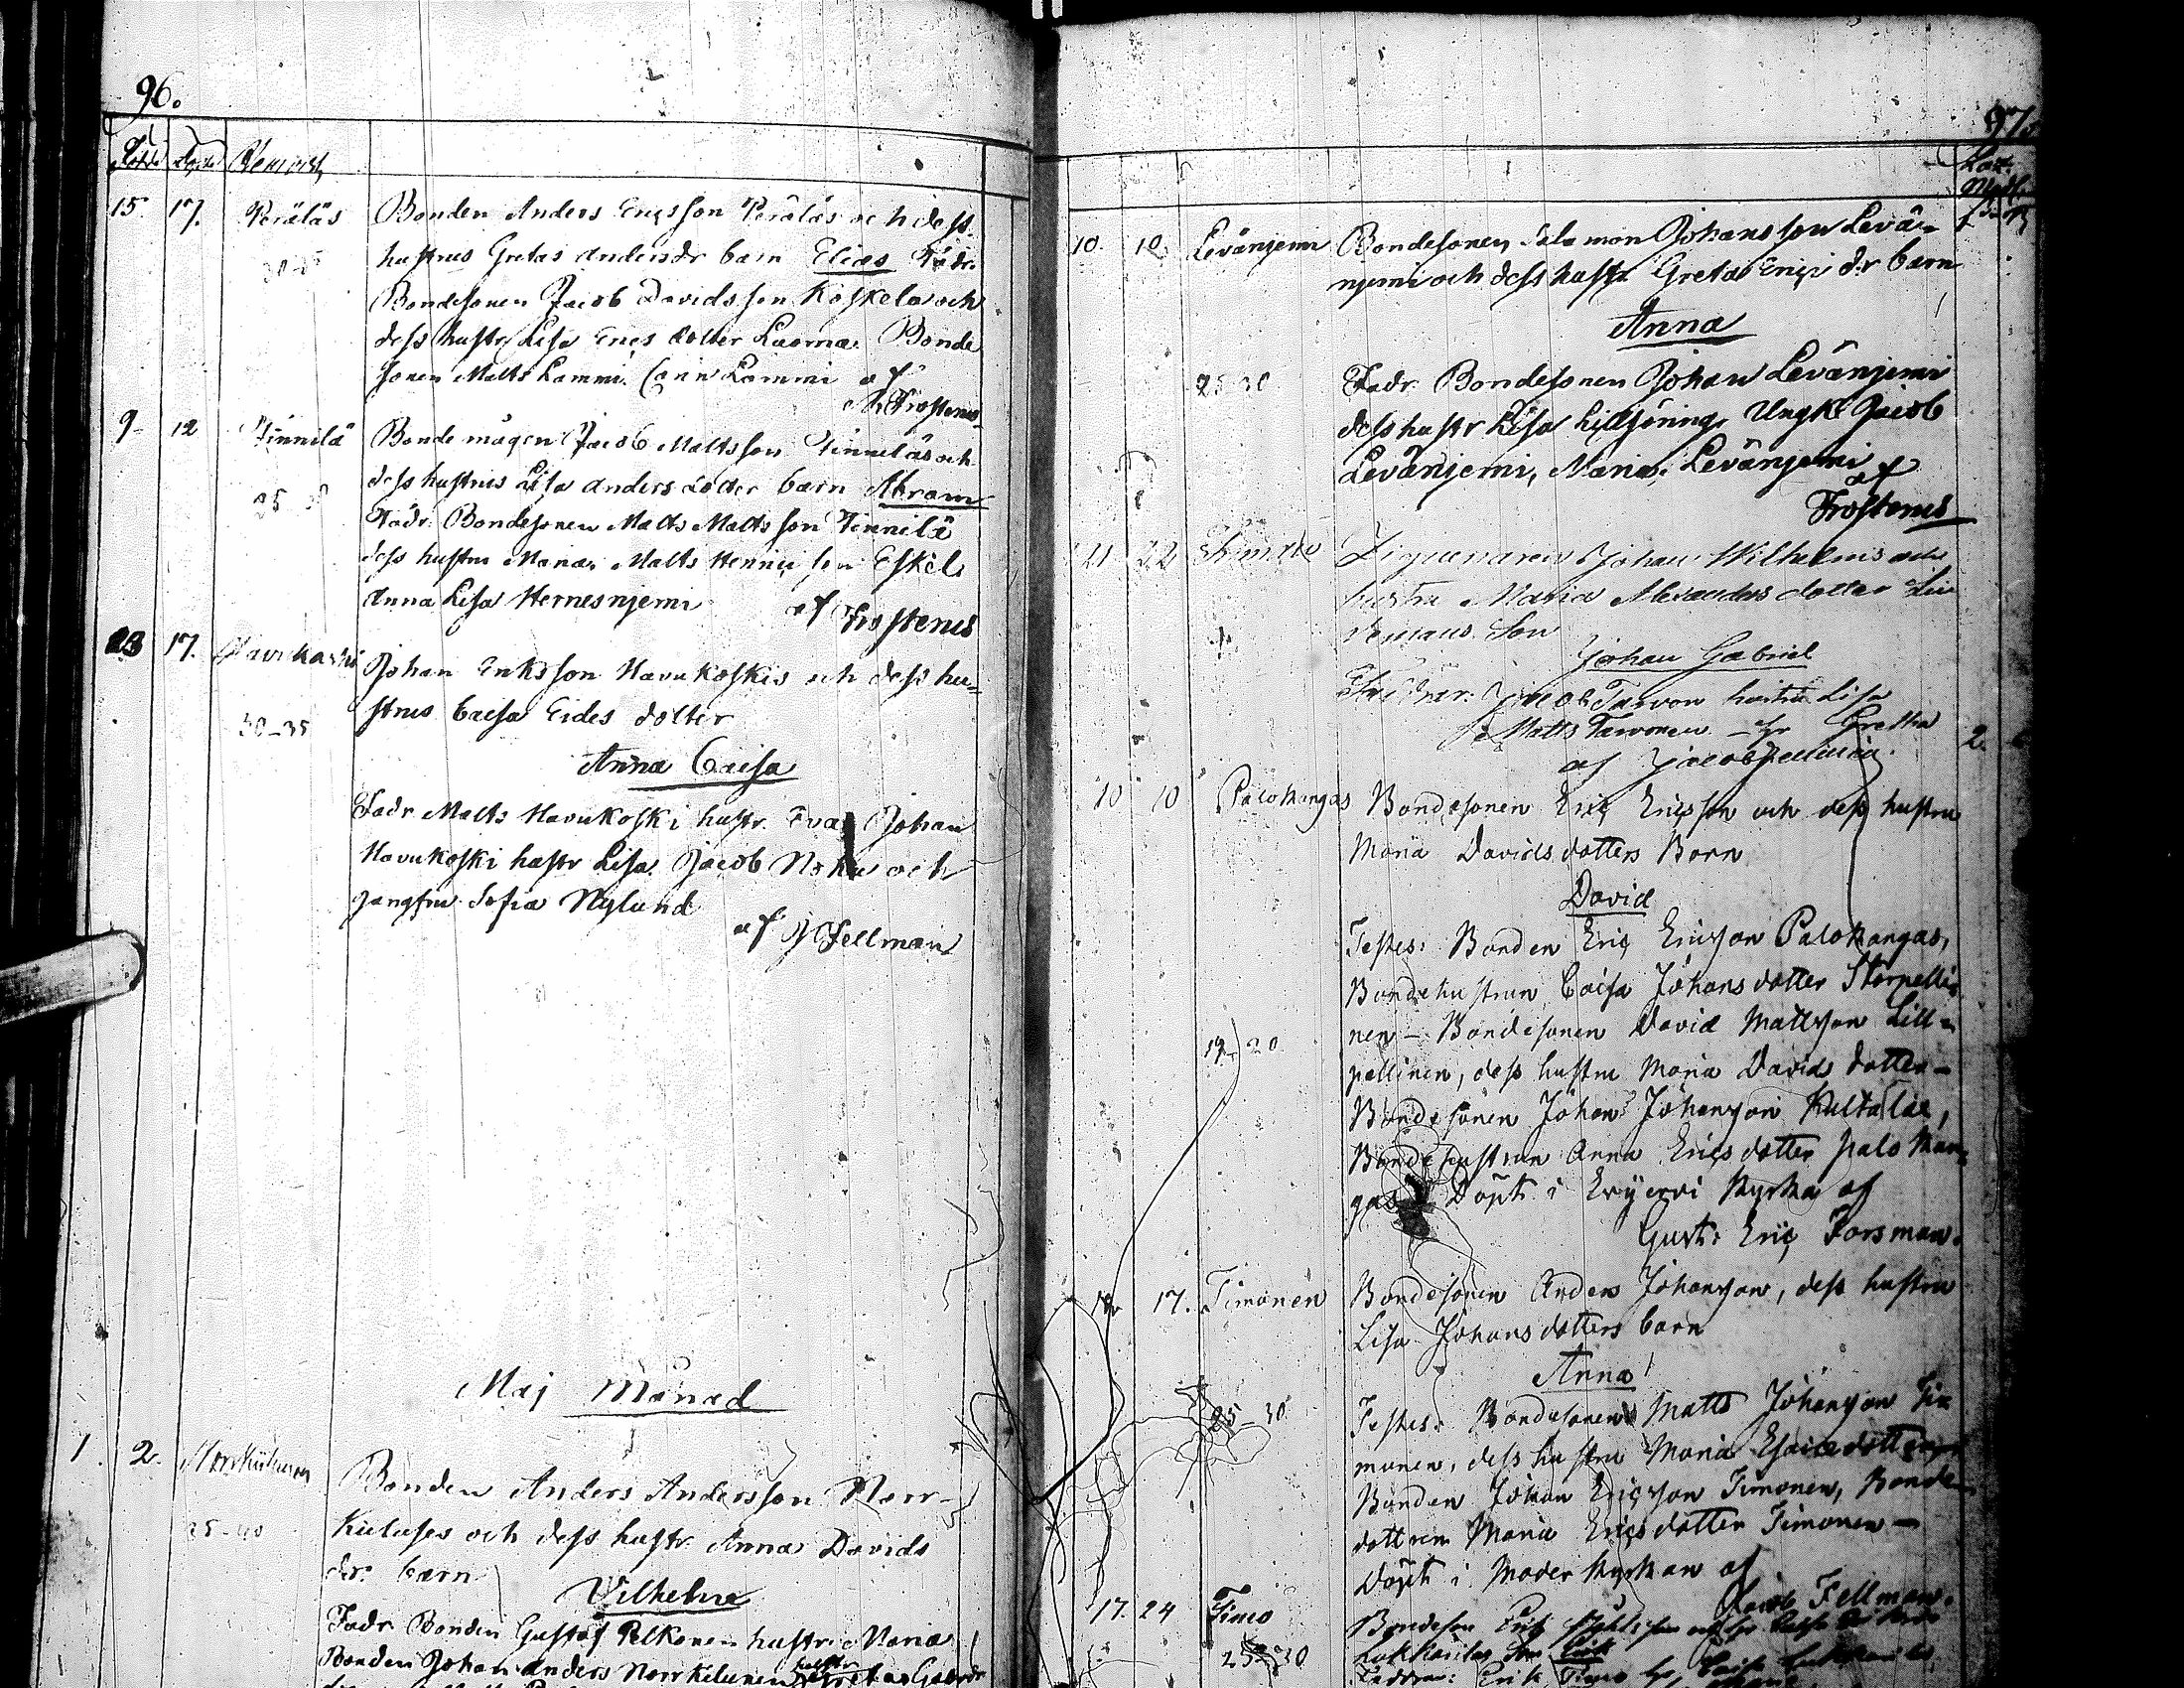 96.
Födde Döpte Hemvist
15. 17. Perälä Bonden Anders Ericsson Peräläs och dess
hustrus Gretas Andersdr barn Elias Fadr.
Bondesonen Jacob Davidsson Koskela och
dess hustr Lisa Erics dotter Luoma Bonde
sonen Matts Lammi. Carin Lammi af
Frosterus
9. 12 Finnilä Bonde mågen Jacob Mattsson Finniläs och
25
dess hustrus Lisa Anders dotter barn Abram
Fadr: Bondesonen Matts Mattsson Finnilä
dess hustru Maria, Matts Henrics son Eskel.
Anna Lisa Hernesnjemi af Frosterus
23 17. Havukoski Johan Eriksson Havukoskis och dess hu=
30-35 strus Caisa dotter
Anna Caisa
Fadr Matts Havukoski hustr. Eva, Johan
Havukoski hustr Lisa. Jacob och
Jungfru Sofia Nylund
af J Fellman
Maj Månad
1. 2. Norrkiulunen Bonden Anders Andersson Norr-
35-40 och dess hustr. Anna Davids
dr. barn
Vilhelm
Fadr Bonden Gustaf Pelkonen hustr. Maria
Bonden Johan Anders hustr
97.
10. 10. Levänjemi Bondesonen Salomon Johansson Levä=
njemi och dess hustr. Gretas Erics d:r barn
Anna
25-30 Fadr. Bondesonen Johan Levänjemi
dess hustr Lisa Ungk. Jacob
Levänjemi, Maria Levänjemi
af
Frosterus
21 22 Johan Wilhelms och
hustru Maria Alexanders dotter
Son
Johan Gabriel
Faddrar: Jacob Tarvon hustru Lisa
Matts Tarvonen - hr Gretha
2.
af Jacob Fellman.
10 10 Palokangas Bondesonen Eric Ericsson och dess hustru
Maria Davids dotters Barn
David
Testes: Bonden Eric Ericsson Palokangas,
Bondehustrun Caisa Johans dotter Storpelli=
nen - Bondesonen David Mattsson Lill=
19-20
pellinen, dess hustru Maria Davids dotter -
Bondesonen Johan Johansson Kultalae,
Bondehustrun Anna Erics dotter Palo kan=
gas Döpt i Evijervi Kyrka af
Gust: Eric Forsman.
17. Timonen Bondesonen Anders Johansson, dess hustru
Lisa Johans dotters barn
Anna
25-30 Testes: Bondesonen Matts Johansson Ti=
monen, dess hustru Maria
Bonden Johan Ericsson Timonen, Bonde
dottren Maria Erics dotter Timonen -
Döpt i Moder kyrkan af
Jacob Fellman.
17. 24 Timo Bondeson Erik
25-30 Son Erik
Faddrar: Erik Timo hr Caisa